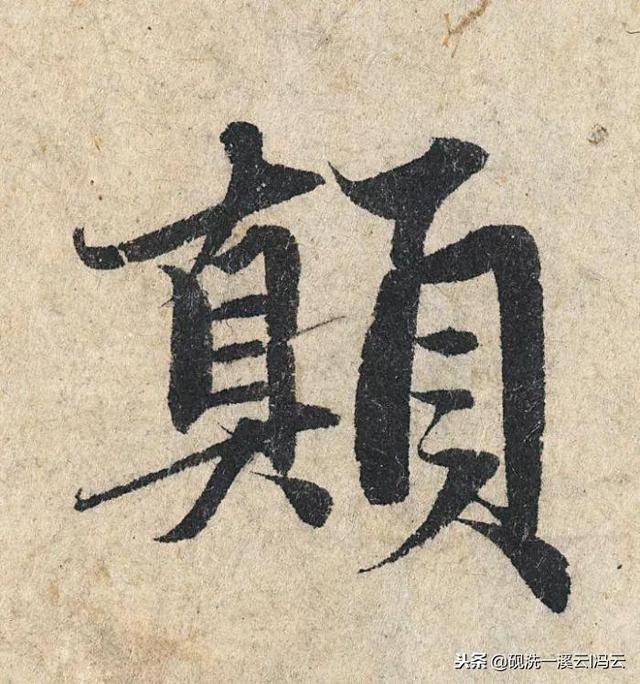 顛
头条 @砚洗一溪云l冯云